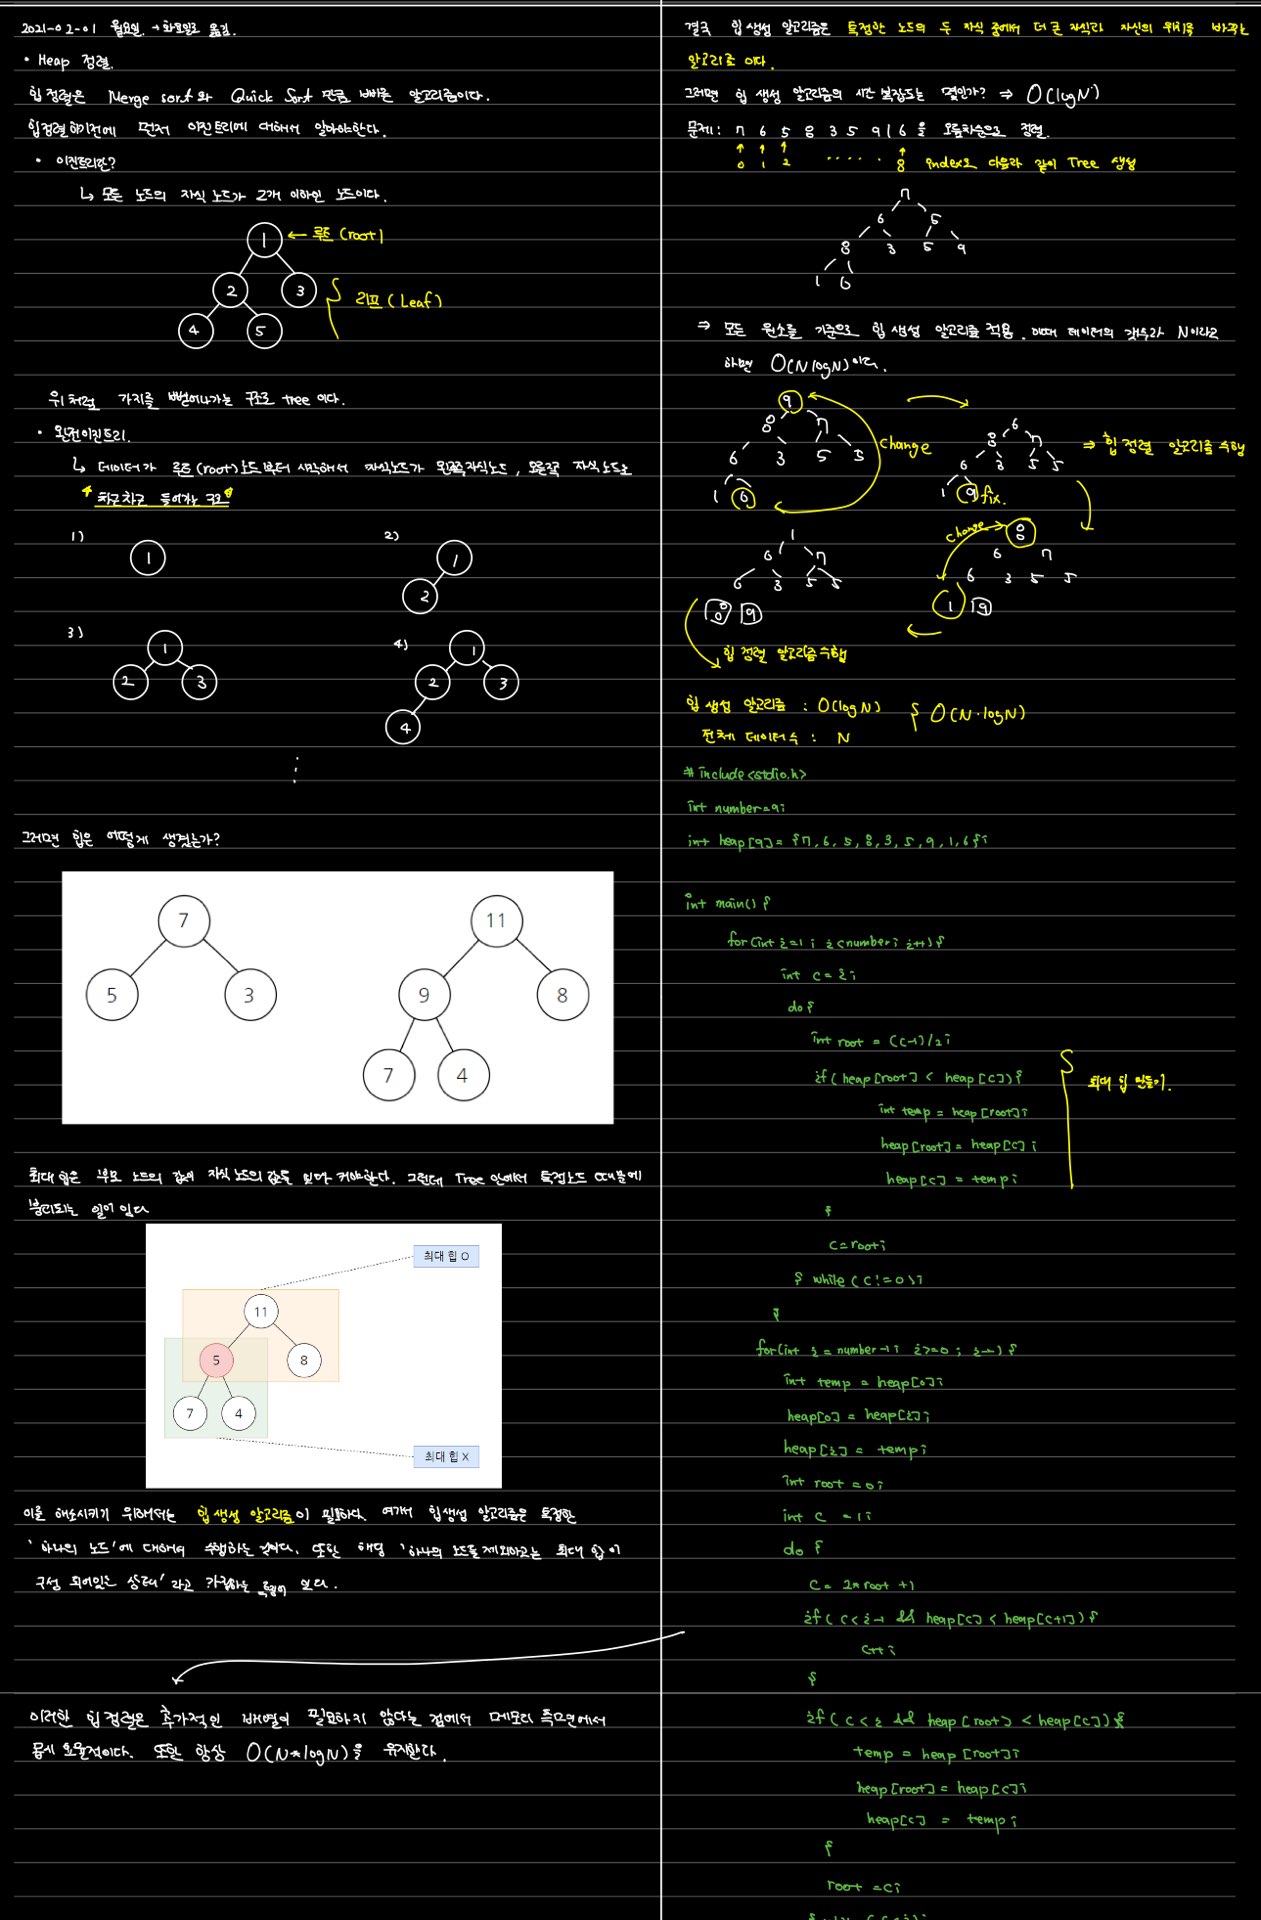 2021-02-01 월요일. → 화요일로 옮김.
• Heap 정렬.
힙정렬은 Merge sort와 Quick Sort 만큼 빠른 알고리즘이다.
힙정렬하기전에 먼저 이진트리에 대해서 알아야한다.
• 이진트리란?
↳ 모든 노드의 자식 노드가 2개 이하인 노드이다.
1 ← 루트 (root)
2 3
리프 (Leaf)
4 5
위처럼 가지를 뻗어나가는 구조로 tree 이다.
• 완전이진트리.
↳ 데이터가 루트(root)노드부터 시작해서 자식노드가 왼쪽자식노드, 오른쪽 자식노드로
"차근차근 들어가는 구조"
1) 1
2) 1 2
3) 1 2 3
4) 1 2 3 4
⋮
그러면 힙은 어떻게 생겼는가?
7 11
5 3 9 8
7 4
최대 힙은 부모 노드의 값이 자식 노드의 값을 보다 커야한다. 그런데 Tree 안에서 특정노드 때문에
분리되는 일이 있다
최대 힙 O
11
5 8
7 4
최대 힙 X
이를 해소시키기 위해서는 힙 생성 알고리즘이 필요하다. 여기서 힙생성 알고리즘은 특정한
'하나의 노드'에 대해서 수행하는 것이다. 또한 해당 '하나의 노드를 제외하고는 최대 힙이
구성 되어있는 상태' 라고 가정하는 특징이 있다.
이러한 힙 정렬은 추가적인 배열이 필요하지 않다는 점에서 메모리 측면에서
몹시 효율적이다. 또한 항상 O(N*logN)을 유지한다.
결국 힙 생성 알고리즘은 특정한 노드의 두 자식 중에서 더 큰 자식과 자신의 위치를 바꾸는
알고리즘 이다.
그러면 힙 생성 알고리즘의 시간 복잡도는 몇인가? ⇒ O(logN)
문제: 7 6 5 8 3 5 9 1 6 을 오름차순으로 정렬.
0 1 2 ...... 8 index로 다음과 같이 Tree 생성
7
6 5
8 3 5 9
1 6
⇒ 모든 원소를 기준으로 힙 생성 알고리즘 적용. 이때 데이터의 갯수가 N이라고
하면 O(N logN)이다.
9
8 7
6 3 5 5
1 6
change
6
8 7
6 3 5 5
1 9 fix.
⇒ 힙 정렬 알고리즘 수행
change 8
6 7
6 3 5 5
1 9
1
6 7
6 3 5 5
8 9
힙 정렬 알고리즘수행
힙 생성 알고리즘 : O(logN) } O(N·logN)
전체 데이터수 : N
#include<stdio.h>
int number=9;
int heap[9]= {7, 6, 5, 8, 3, 5, 9, 1, 6};
int main() {
for(int i=1; i<number; i++){
int c = i;
do {
int root = (c-1)/2;
if(heap[root] < heap[c]){
int temp = heap[root];
heap[root]= heap[c];
heap[c] = temp;
최대 힙 만들기.
}
c=root;
} while (c!=0);
}
for(int i = number-1; i>=0; i--) {
int temp = heap[0];
heap[0] = heap[i];
heap[i] = temp;
int root =0;
int c =1;
do {
c= 2*root +1
if( c<i-1 && heap[c] < heap[c+1]){
c++;
}
if( c<i && heap[root] < heap[c]){
temp = heap[root];
heap[root]= heap[c];
heap[c] = temp;
}
root =c;
} while (c<i);